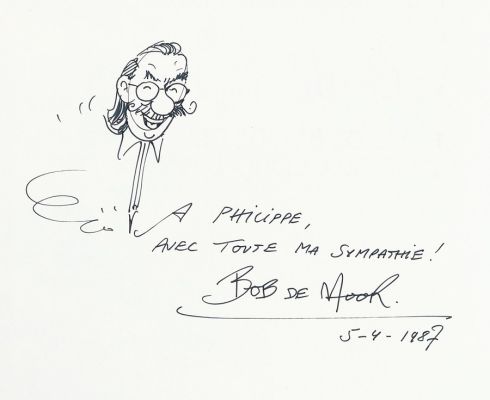 A PHILIPPE,
AVEC TOUTE MA SYMPATHIE!
BOB DE MOOR.
5-4-1987